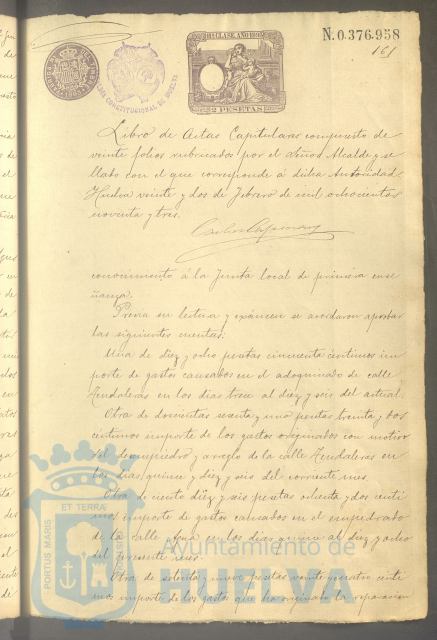 N. 0.376.958
161
11ª CLASE AÑO 189
2 PESETAS
CONSTITUCIONAL DE HUELVA
Libro de Actas Capitulares compuesto de
veinte folios rubricados por el Señor Alcalde y se
llado con el que corresponde á dicha Autoridad
Huelva veinte y dos de Febrero de mil ochocientos
noventa y tres.
conocimiento á la Junta local de primera ense
ñanza.
Previa su lectura y exámen se acordaron aprobar
las siguientes cuentas:
Una de diez y ocho pesetas cincuenta céntimos im
porte de gastos causados en el adoquinado de calle
Tendaleras en los dias trece al diez y seis del actual.
Otra de doscientas sesenta y una pesetas treinta y dos
céntimos importe de los gastos originados con motivo
del desempiedro y arreglo de la calle Tendaleras en
los dias quince y diez y seis del corriente mes.
Otra de ciento diez y seis pesetas ochenta y dos cénti
mos importe de gastos causados en el empedrado
de la calle en los dias quince al diez y ocho
del presente mes.
Otra de setenta y nueve pesetas veinte y cuatro cénti
mos importe de los gastos que ha originado la reparacion
PORTUS MARIS
ET TERRÆ
Ayuntamiento de
HUELVA